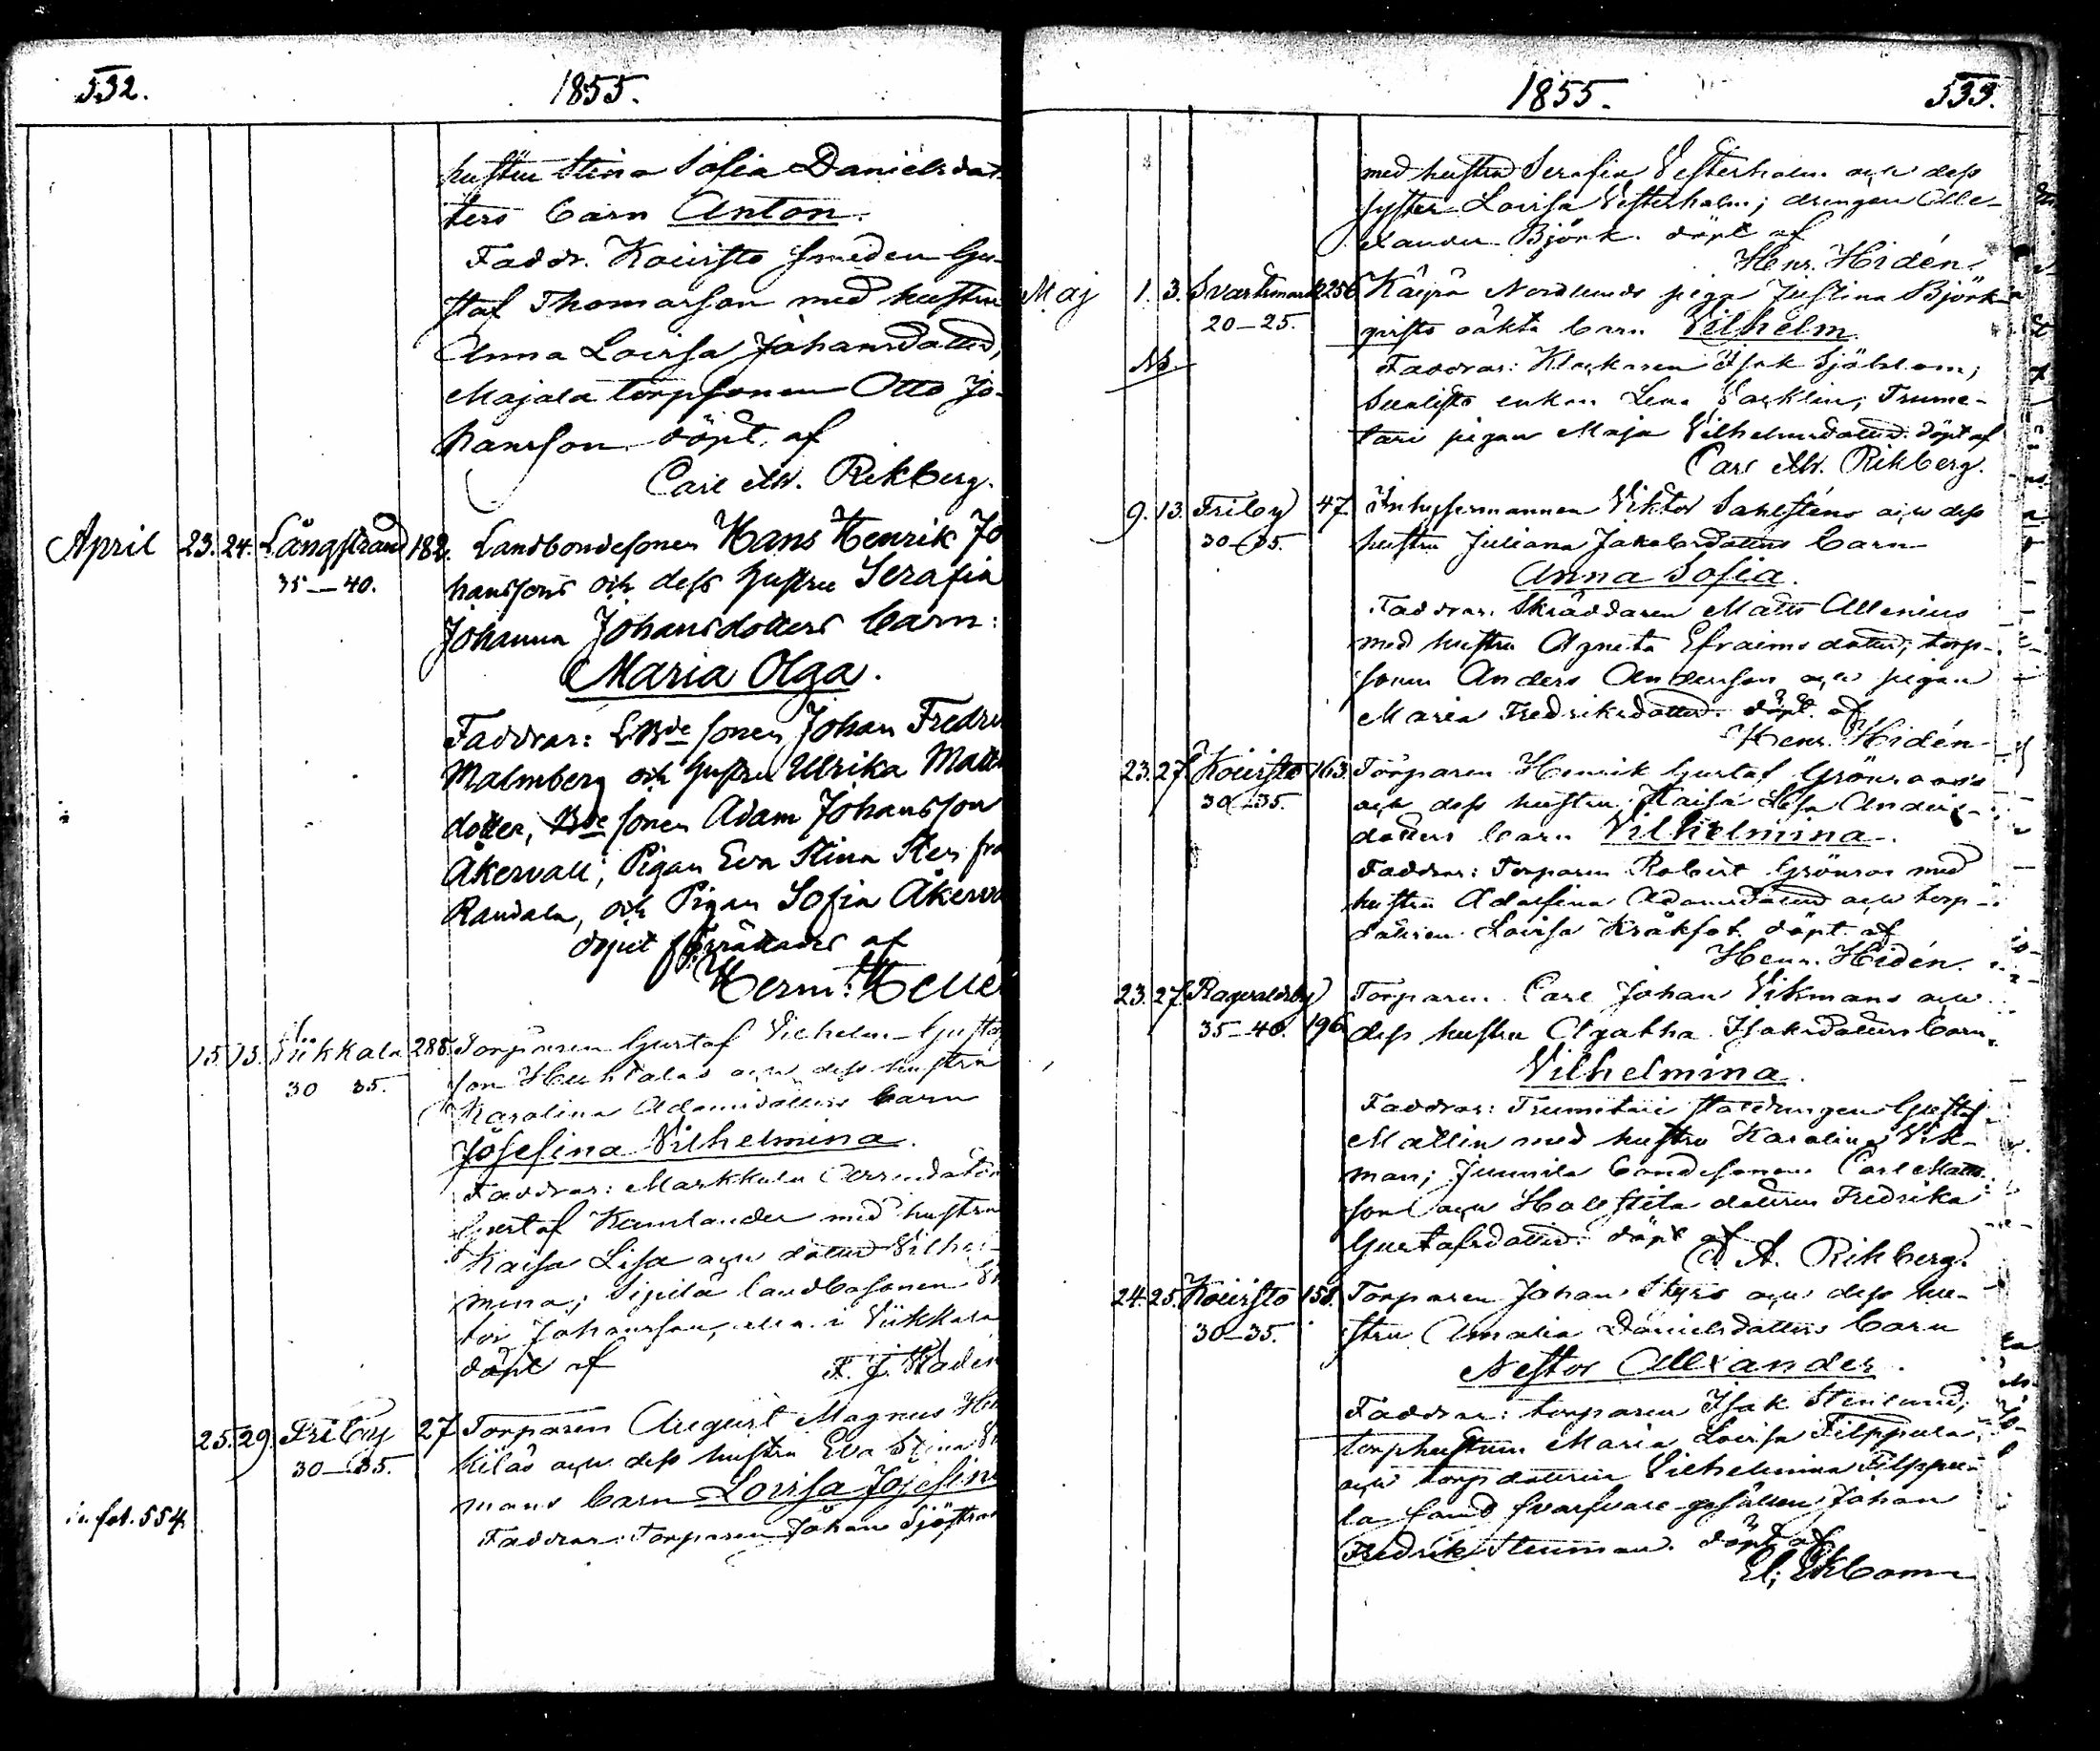 532.
1855.
hustru Stina Sofia Danielsdot-
ters barn Anton.
Faddr. Kouisto smeden Gu-
staf Thomasson med hustru
Anna Lovisa Johansdotter,
Majala torpsonen Otto Jo-
hansson. döpt. af
Carl Rikberg.
April 23. 24. Långstrand 182. Landbondesonen Hans Henrik Jo
35—40. hanssons och dess hustru Serafia
Johanna Johansdotters barn:
Maria Olga.
Faddrar: sonen Johan Fredri
Malmberg och hustru Ulrika Matts
dotter, Bde sonen Adam Johansson
Åkervall; Pigan Eva Stina Sten fra
Raudala, och Pigan Sofia Åkerva
döpet förrättades af
Herm: Hellé
15. 15. Viikkala 288. Torparen Gustaf Vilhelm Gustaf
30 35. son Huhtalas och dess hustru
Karolina Adamsdotters barn
Josefina Vilhelmina.
Faddrar: Markkula Arrendatorn
Gustaf Kumlander med hustru
Kaisa Lisa och dotter Vilhel-
mina; Sipilä landbosonen Vik
tor Johansson, alla i Viikkala
döpt af F. J. Wadén
25. 29. Friby 27 Torparen August Magnus
30—35. och dess hustru Eva Stina
mans barn Lovisa Josefina
Faddrar: Torparen Johan Sjöstran
in fol. 554.
1855.
533.
med hustru Serafia Vesterholm och dess
syster Lovisa Vesterholm; drengen Alle-
xander Björk. döpt af
Henr. Hidén.
Maj 1. 3. Svartsmark 256 Käyrä Nordlunds piga Justina Björk-
20—25. qvists oäkta barn Vilhelm
Nb
Faddrar: Klockaren Isak Sjöblom;
enkan Lena Vacklin; Trume-
tari pigan Maja Vilhelmsdotter. döpt af
Carl Rikberg.
9. 13. Friby 47. Inhysesmannen Viktor Sahlsténs och dess
30—35. hustru Juliana Jakobsdotters barn
Anna Sofia.
Faddrar: Skräddaren Matts Allenius
med hustru Agneta Efraimsdotter; torp-
sonen Anders Andersson och pigan
Maria Fredriksdotter. döpt. af
Henr. Hidén
23. 27. Kouisto 163. Torparen Henrik Gustaf Grönroos's
30—35. och dess hustru Kaisa Lisa Anders-
dotters barn Vilhelmina.
Faddrar: Torparen Robert Grönroos med
hustru Adolfina Adamsdotter och torp-
dottren Lovisa Kråkfot. döpt af
Henr. Hidén.
23. 27. Ragvaldsby Torparen Carl Johan Vikmans och
35—40. 196 dess hustru Agatha Isaksdotters barn
Vilhelmina.
Faddrar: Trumetari staldrengen Gustaf
Mallin med hustru Karolina Vik-
man; Juumila bondesonen Carl Matts-
son och Hallstila dottren Fredrika
Gustafsdotter. döpt af
A. Rikberg.
24. 25. Kouisto 158. Torparen Johan Styrs och dess hu-
30—35. stru Amalia Danielsdotters barn
Nestor Allexander.
Faddrar: torparen Isak Stenlund;
torphustrun Maria Lovisa Filppula,
och torpdottren Vilhelmina Filppu-
la samt svarfvare gesällen Johan
Fredrik Stenman. döpt af
El; Ekbom